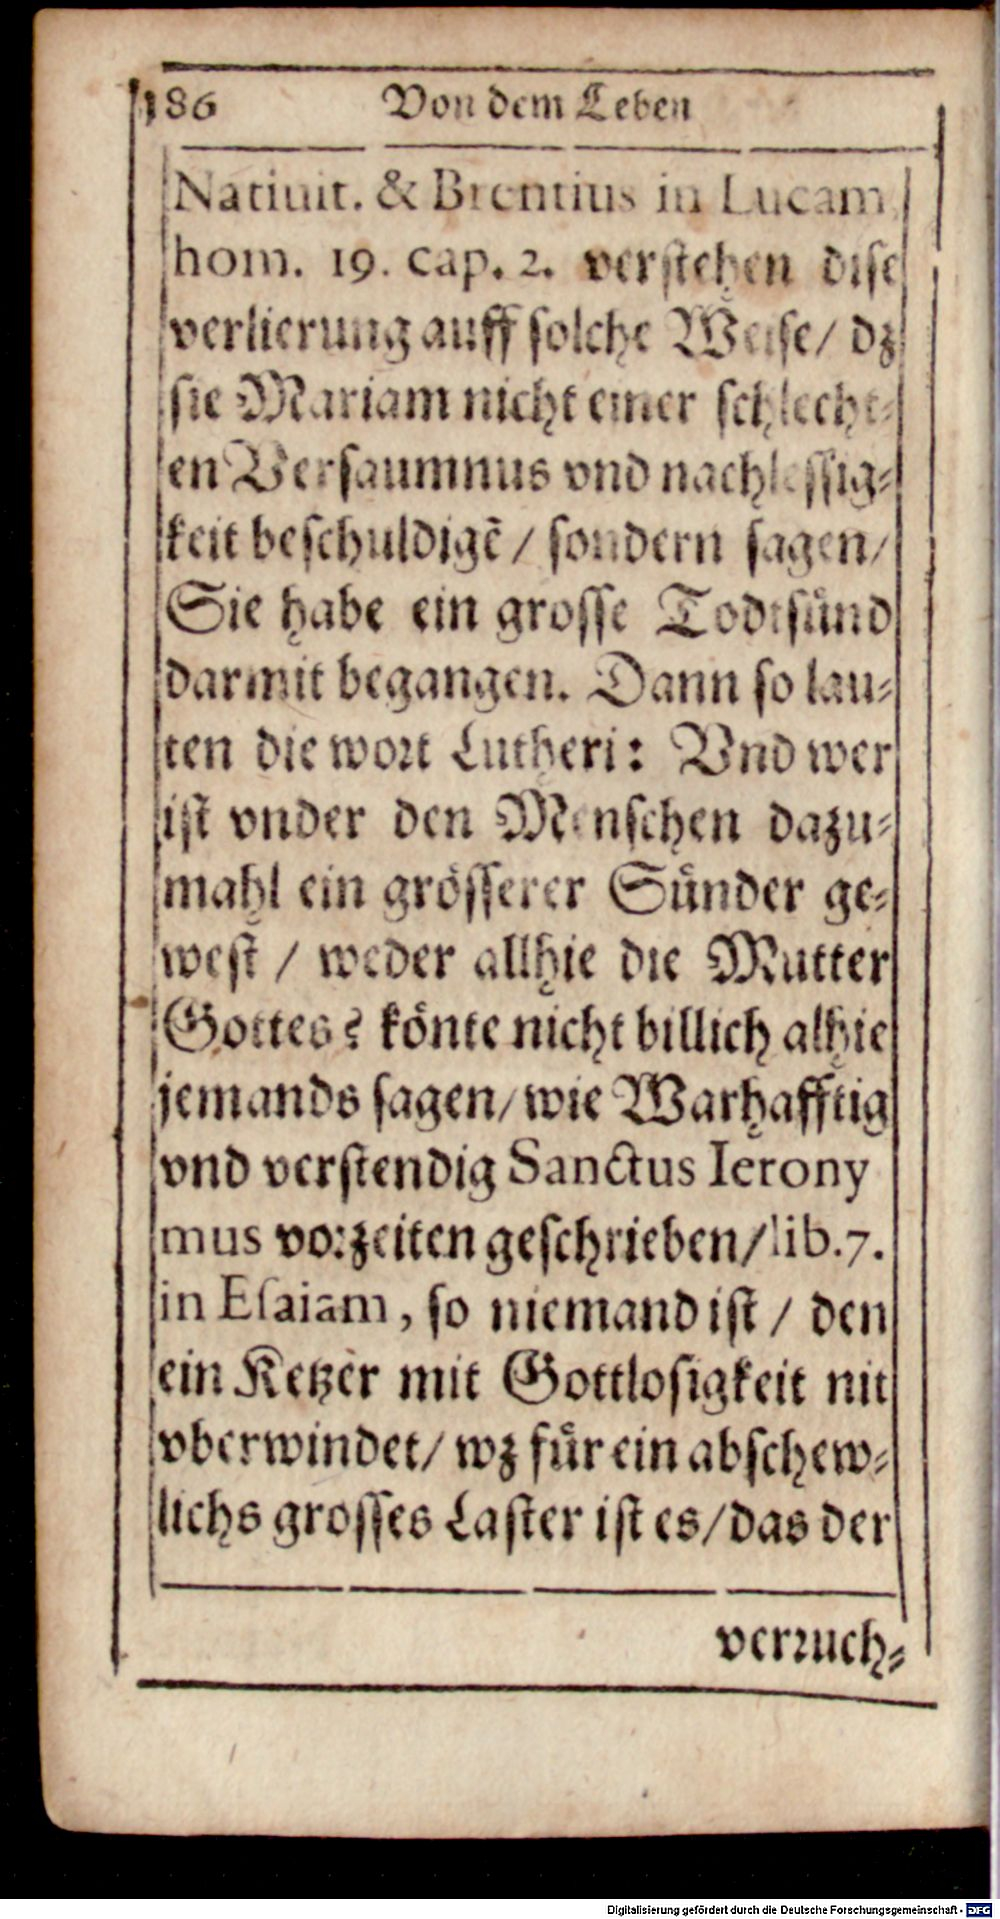 186 Von dem Leben
Natiuit. & Brentius in Lucam
hom. 19. cap. 2. verstehen dise
verlierung auff solche Weise/ dz
sie Mariam nicht einer schlecht-
en Versaumnus vnd nachlessig-
keit beschuldigẽ / sondern sagen/
Sie habe ein grosse Todtsünd
darmit begangen. Dann so lau-
ten die wort Lutheri: Vnd wer
ist vnder den Menschen dazu-
mahl ein grösserer Sünder ge-
west / weder allhie die Mutter
Gottes? könte nicht billich alhie
jemands sagen/ wie Warhafftig
vnd verstendig Sanctus Ierony
mus vorzeiten geschrieben/ lib. 7.
in Esaiam, so niemand ist / den
ein Ketzer mit Gottlosigkeit nit
vberwindet/ wz für ein abschew-
lichs grosses Laster ist es/ das der
verruch-
Digitalisierung gefördert durch die Deutsche Forschungsgemeinschaft - DFG